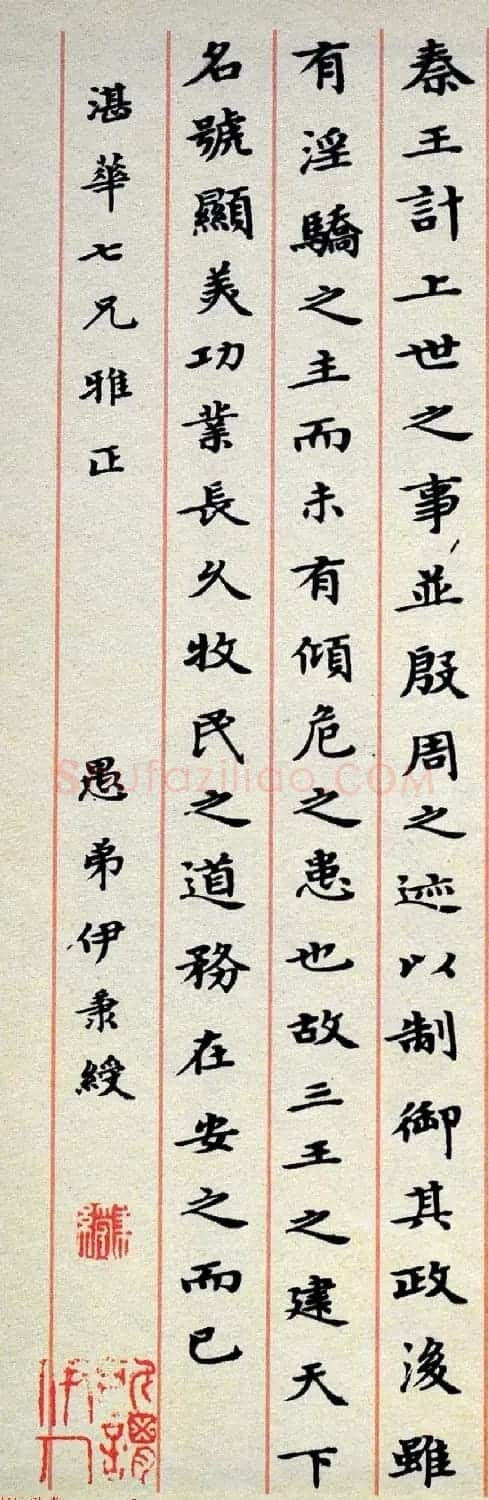 秦王計上世之事並殷周之迹以制御其政後雖
有淫驕之主而未有傾危之患也故三王之建天下
名號顯美功業長久牧民之道務在安之而已
湛華七兄雅正
愚弟伊秉綬
Shufaziliao.COM